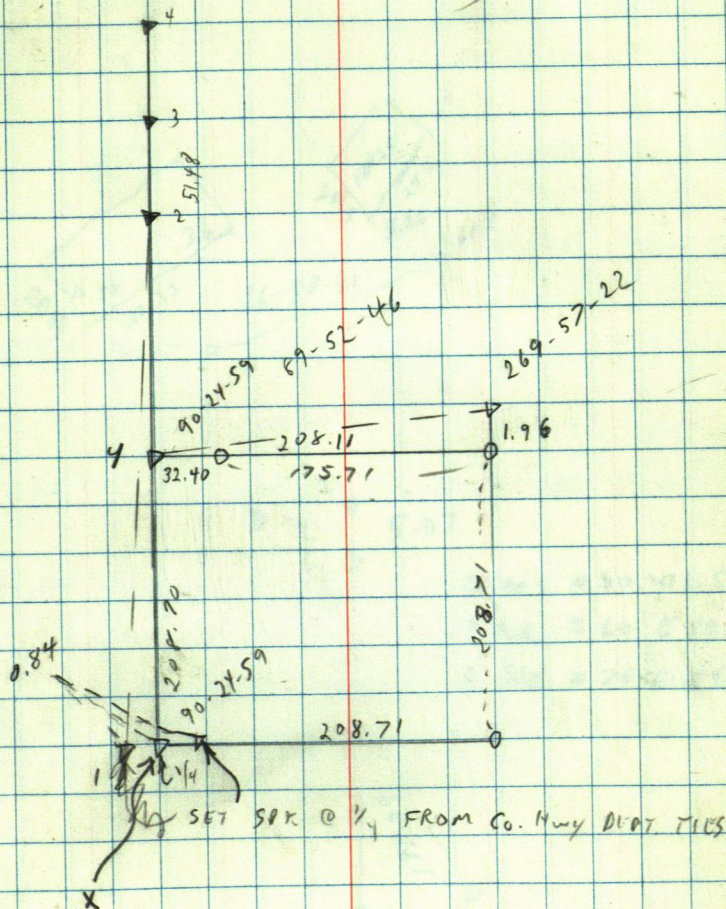 4
3
51.48
2
269-57-22
89-52-46
90-24-59
1.96
208.11
4
32.40
175.71
208.70
208.71
0.84
90-24-59
208.71
1
1/4
SET SPK @ 1/4 FROM Co. Hwy DEPT. TIES
X